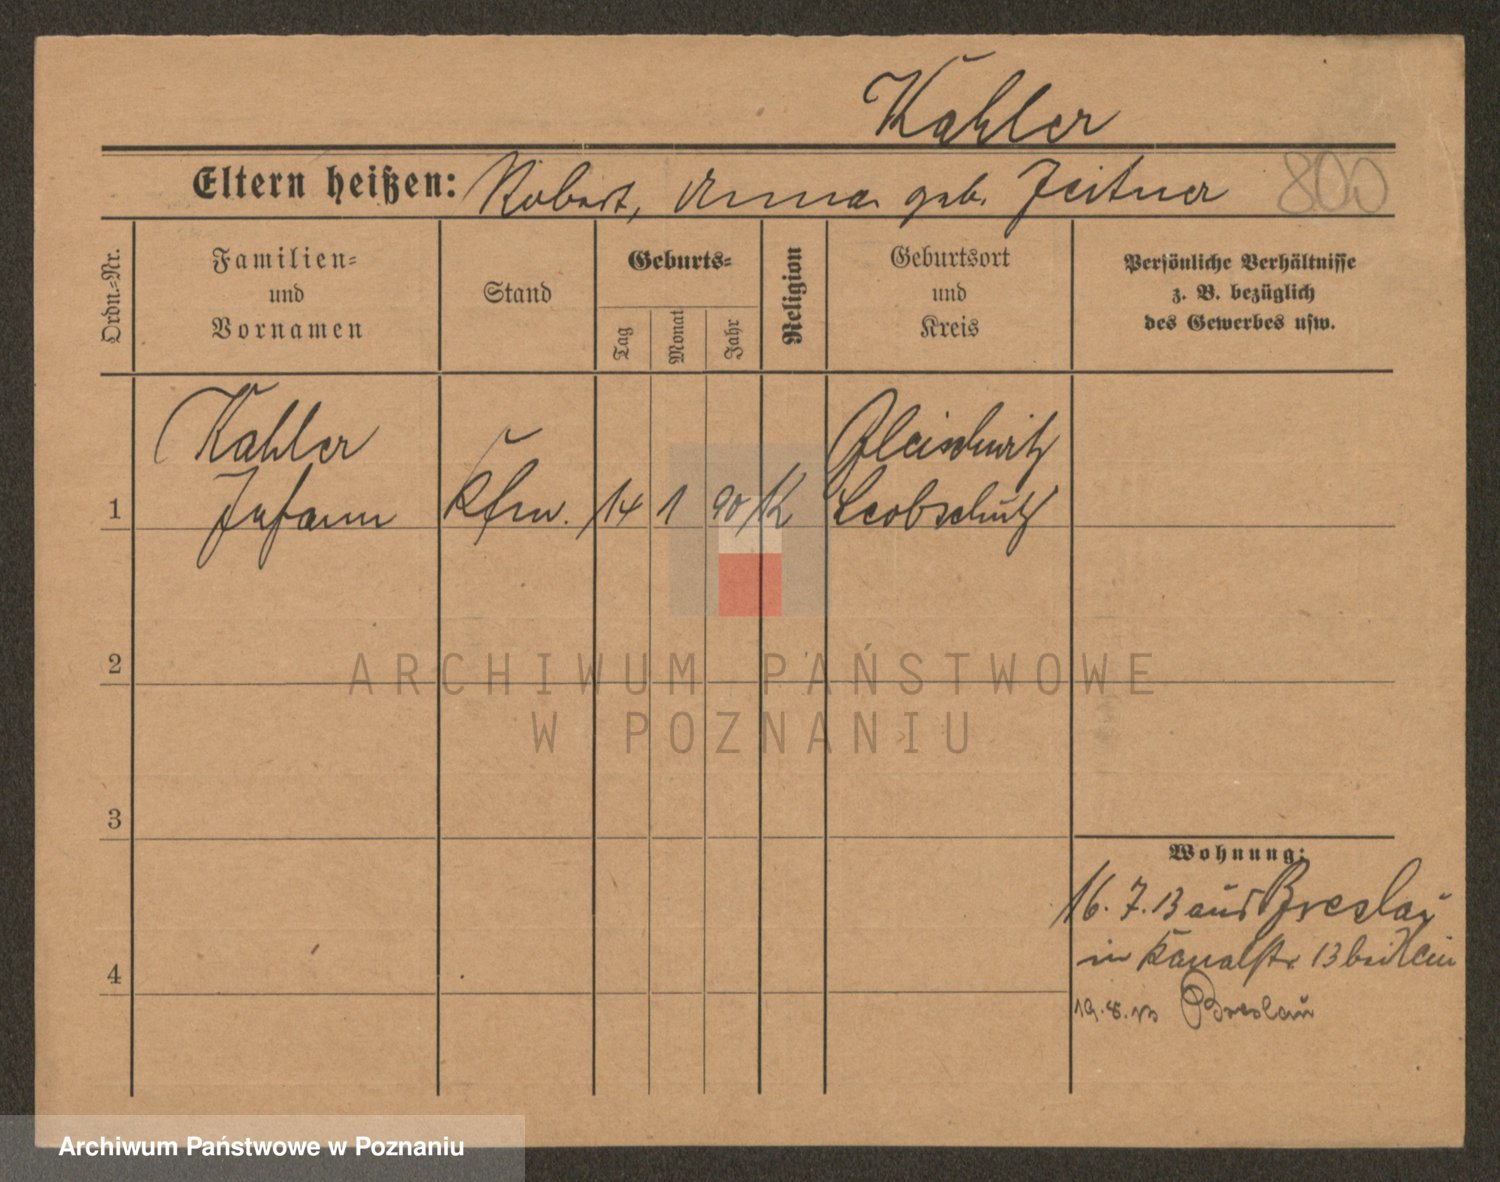 Kahler
Eltern heißen: Robert, Anna geb. Zeitner 800
Ordn.-Nr.
Familien-
und
Vornamen
Stand
Geburts-
Tag
Monat
Jahr
Religion
Geburtsort
und
Kreis
Persönliche Verhältnisse
z. B. bezüglich
des Gewerbes usw.
Kahler
1 Johann Kfm. 14 1 90 K
Leobschütz
2
3
4
Wohnung:
16.7.13 aus Breslau
in Kanalstr 13 bei
19.8.13 Breslau
ARCHIWUM PAŃSTWOWE
W POZNANIU
Archiwum Państwowe w Poznaniu